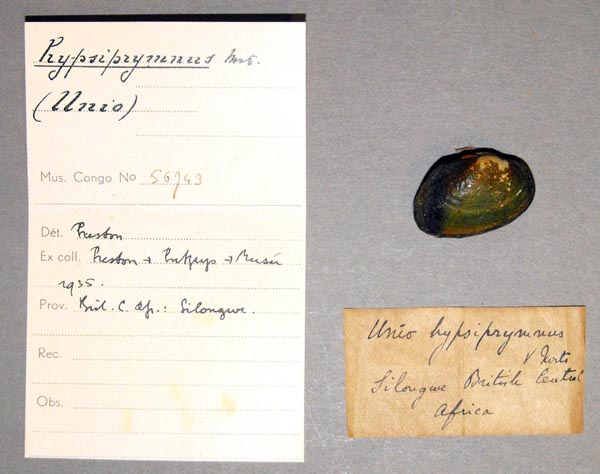 Hypsiprymnus Mrts.
(Unio)
Mus. Congo No 56743
Dét. Preston
Ex coll. Preston → Putzeys → Musée
1935.
Prov. Brit. C. Af.: Silongwe.
Rec.
Obs.
Unio hypsiprymnus
v Mrts
Silongwe British Central
Africa